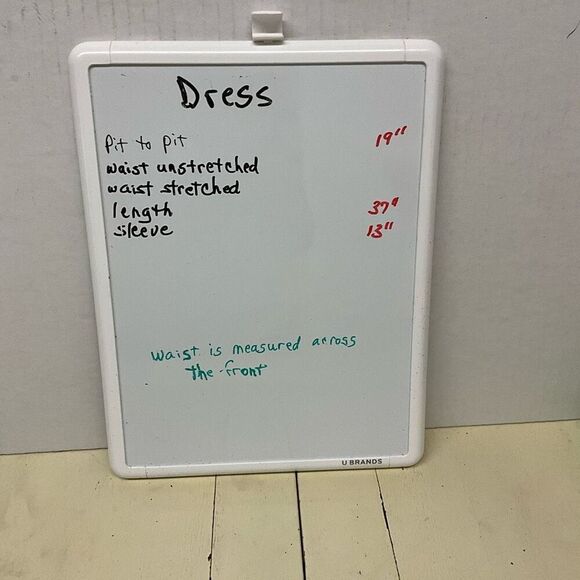 Dress
Pit to pit 19"
waist unstretched
waist stretched
length 37"
sleeve 13"
waist is measured across
the front
U BRANDS